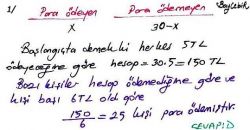 1/ Para ödeyen Para ödemeyen
x 30-x
Başlangıçta demek ki herkes 5TL
ödeyeceğine göre hesap = 30.5 = 150TL
Bazı kişiler hesap ödemediğine göre ve
kişi başı 6TL old göre
150/6 = 25 kişi para ödemiştir.
CEVAP:D